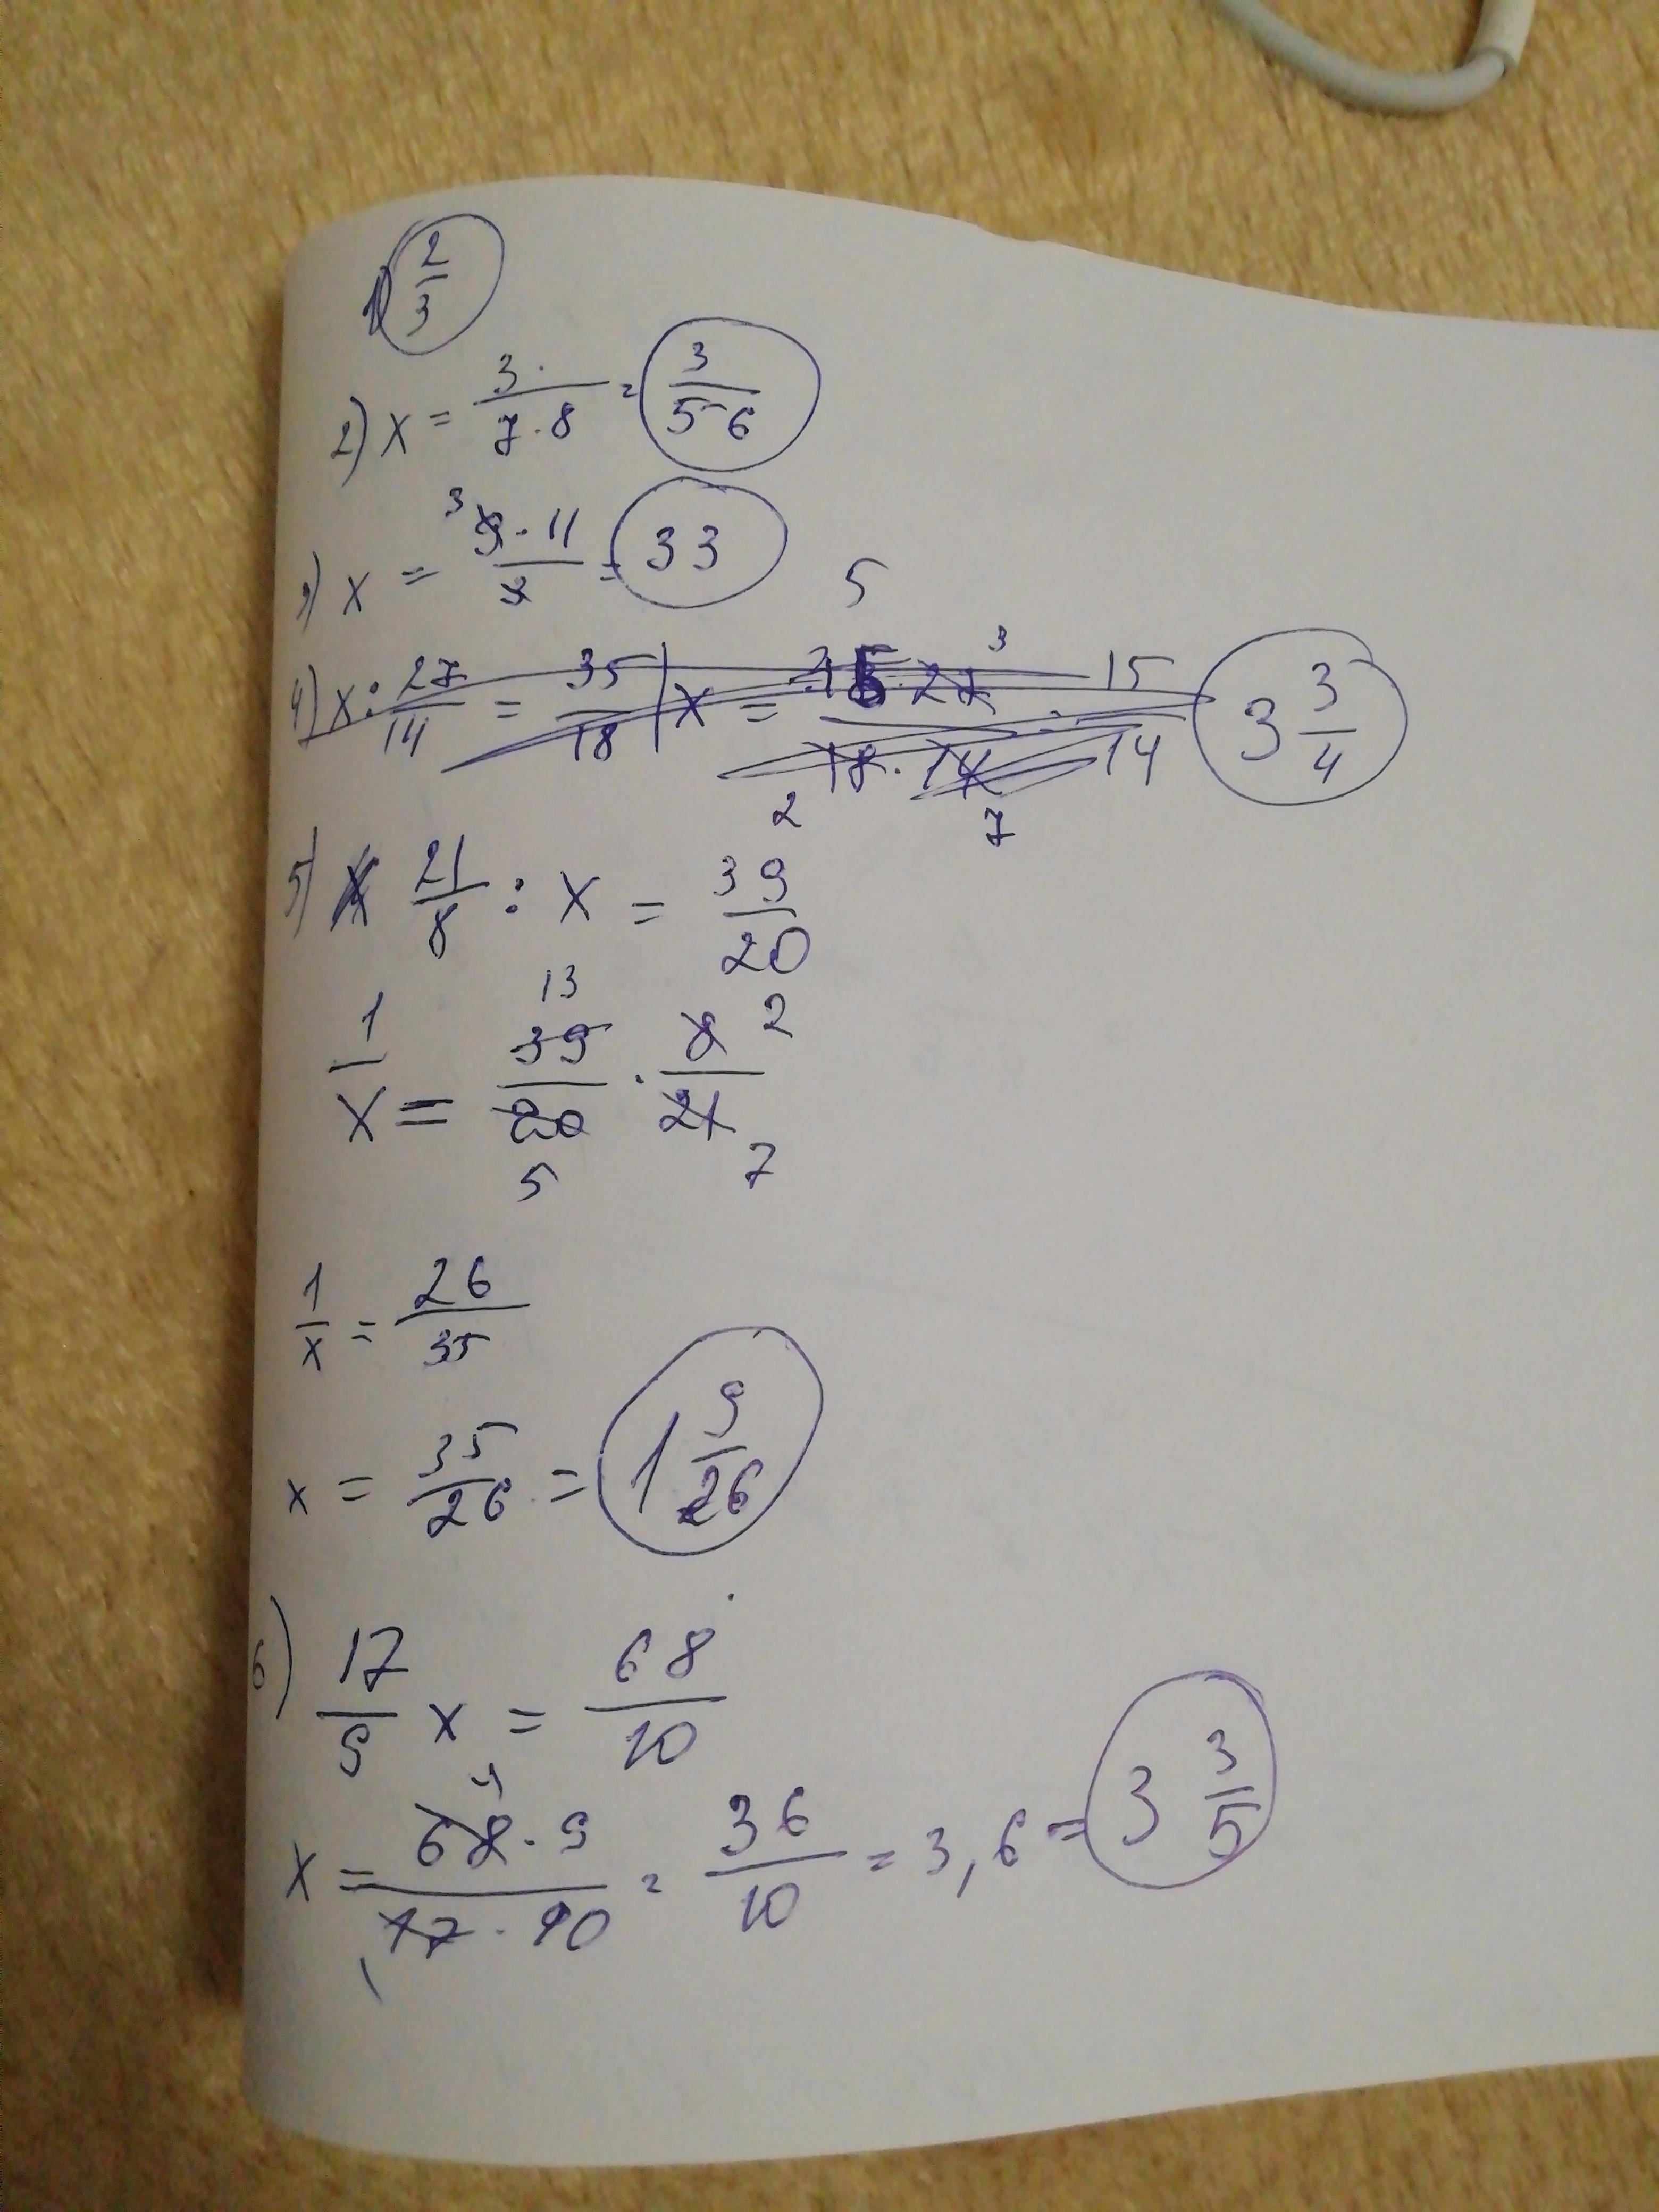 1) 2/3
2) x = 3·/7·8 = 3/56
3) x = 9·11/3 = 33 3
4) x : 27/14 = 35/18 | x = 27/18·14 = 15/14 3 3/4 5 3 2 7
5) 21/8 : x = 39/20
1/x = 39/20 · 8/21 13 2 5 7
1/x = 26/35
x = 35/26 = 1 9/26
6) 17/9 x = 68/10
x = 68·9/17·10 = 36/10 = 3,6 = 3 3/5 4 1